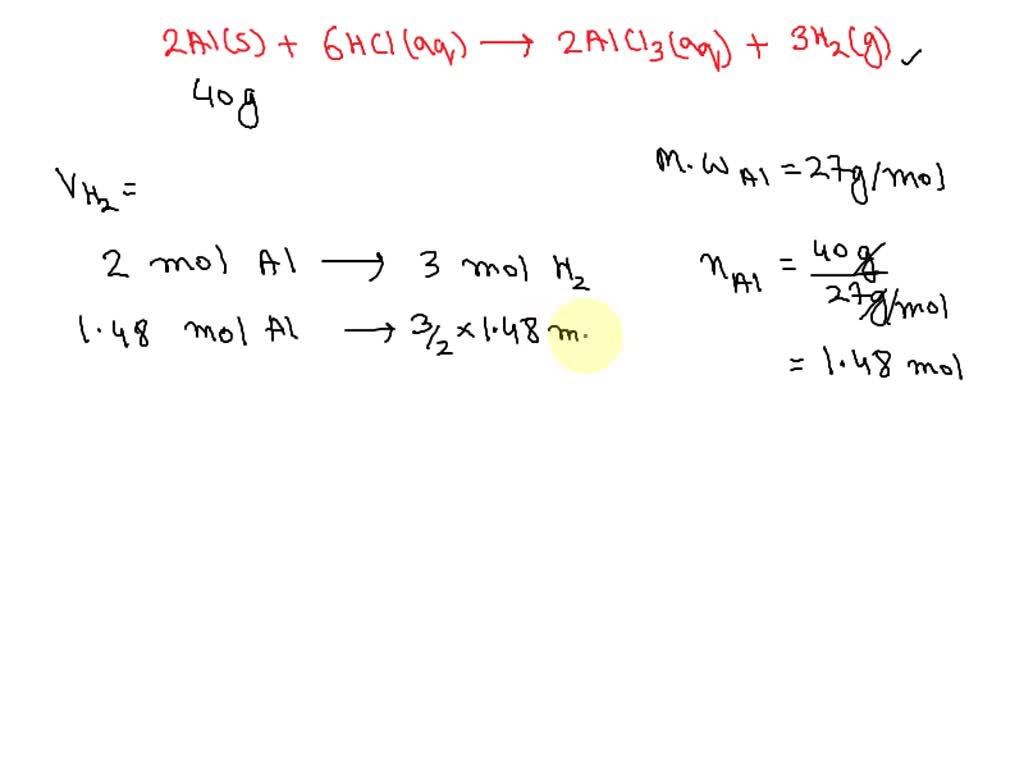 2Al(s) + 6HCl(aq) → 2AlCl₃(aq) + 3H₂(g) ✓
40g
M.W Al = 27g/mol
V H₂ =
2 mol Al → 3 mol H₂
n Al = 40g / 27g/mol
1.48 mol Al → 3/2 × 1.48 m.
= 1.48 mol